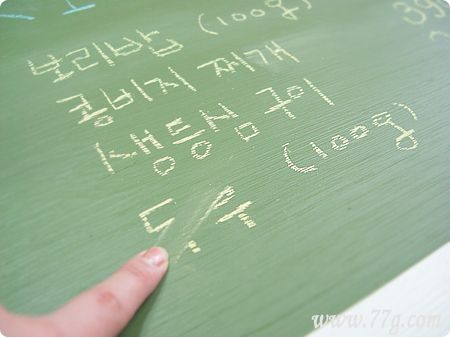 보리밥 (100g)
콩비지 찌개
생등심 구이
(100g)
39
www.77g.com